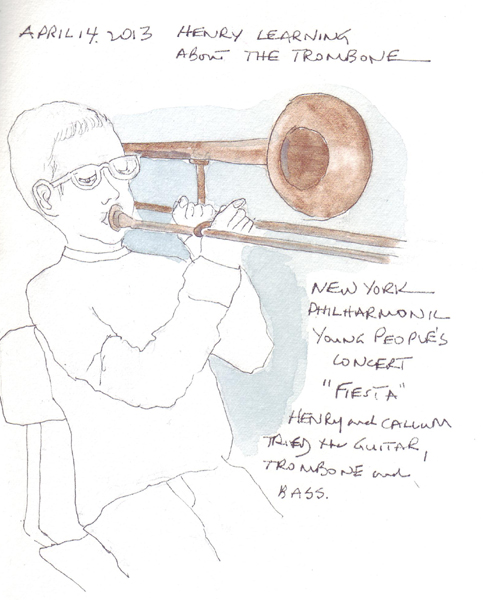 APRIL 14. 2013 HENRY LEARNING
ABOUT THE TROMBONE
NEW YORK
PHILHARMONIC
YOUNG PEOPLE'S
CONCERT
"FIESTA"
HENRY and CALLUM
TRIED the GUITAR,
TROMBONE and
BASS.